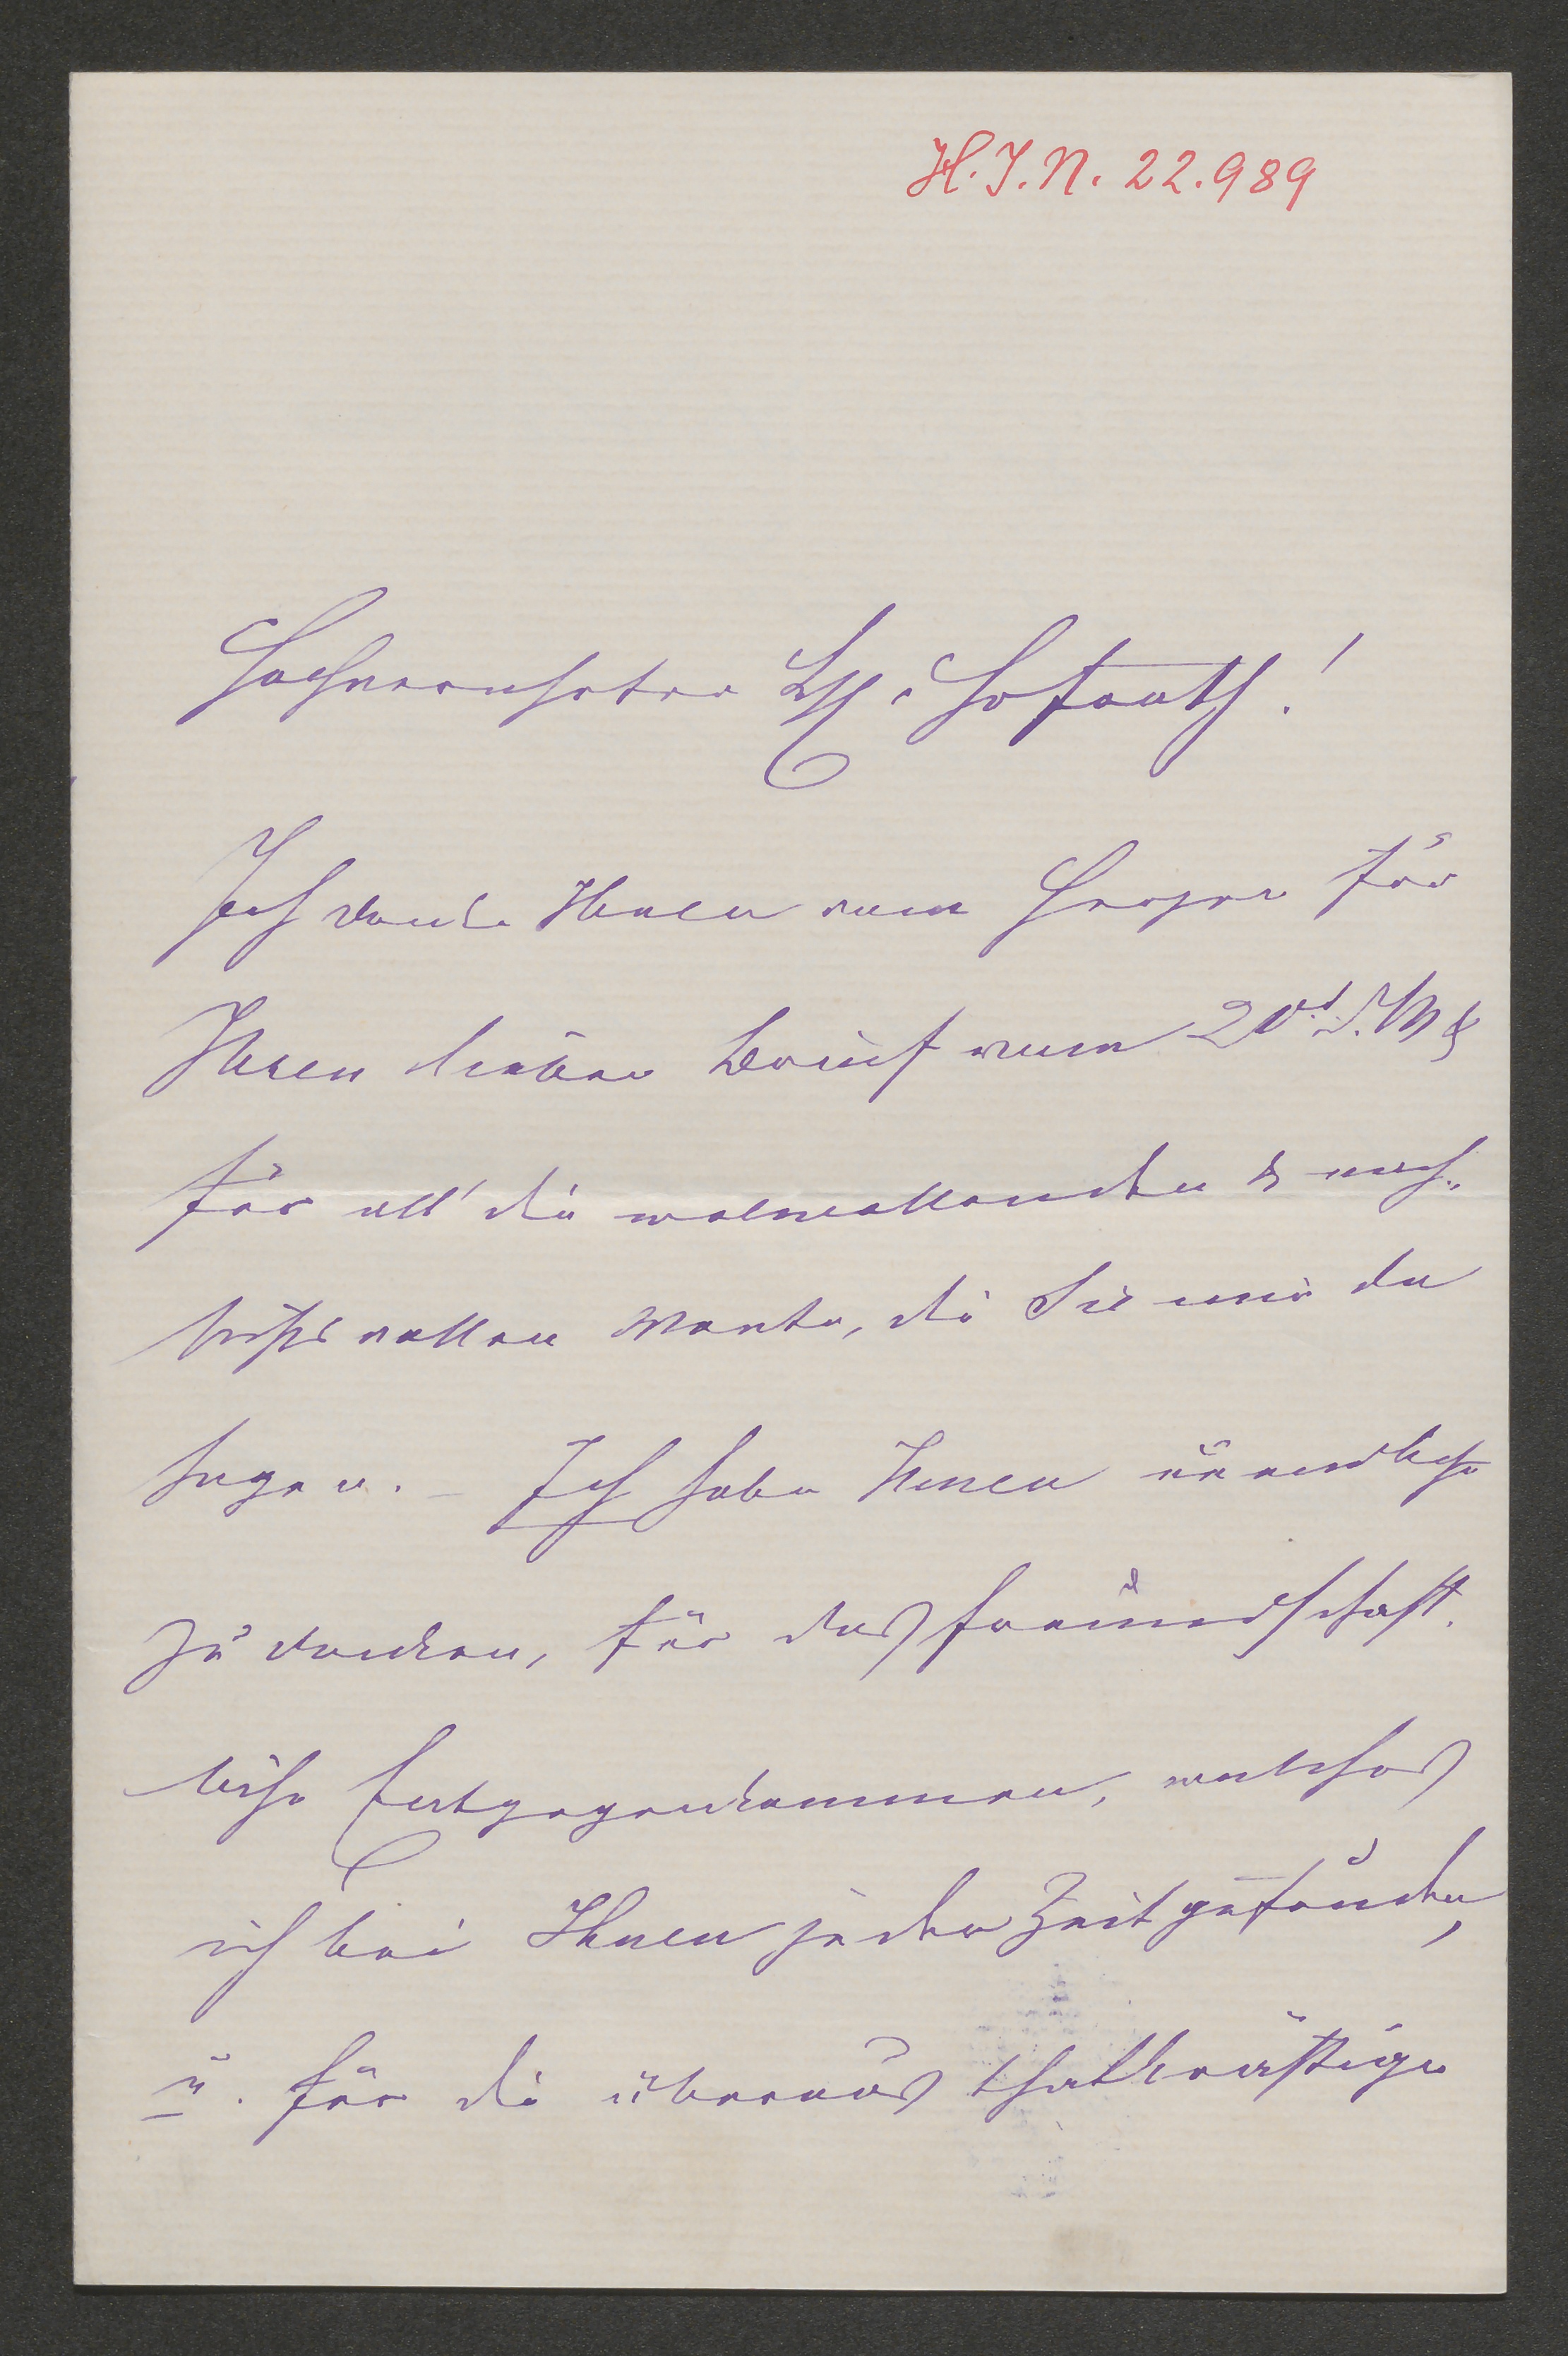 H.I.N. 22.989
Hochverehrter H. Hofrath!
Ich danke Ihnen vom Herzen für
Ihren lieben Brief vom 20t d. M &
für all' die wolwollenden & nach-
sichtsvollen Worte, die Sie mir da
sagen. – Ich habe Ihnen unendlich
zu danken, für das freundschaft-
liche Entgegenkommen, welches
ich bei Ihnen jeder Zeit gefunden,
u. für die überaus thatkräftige